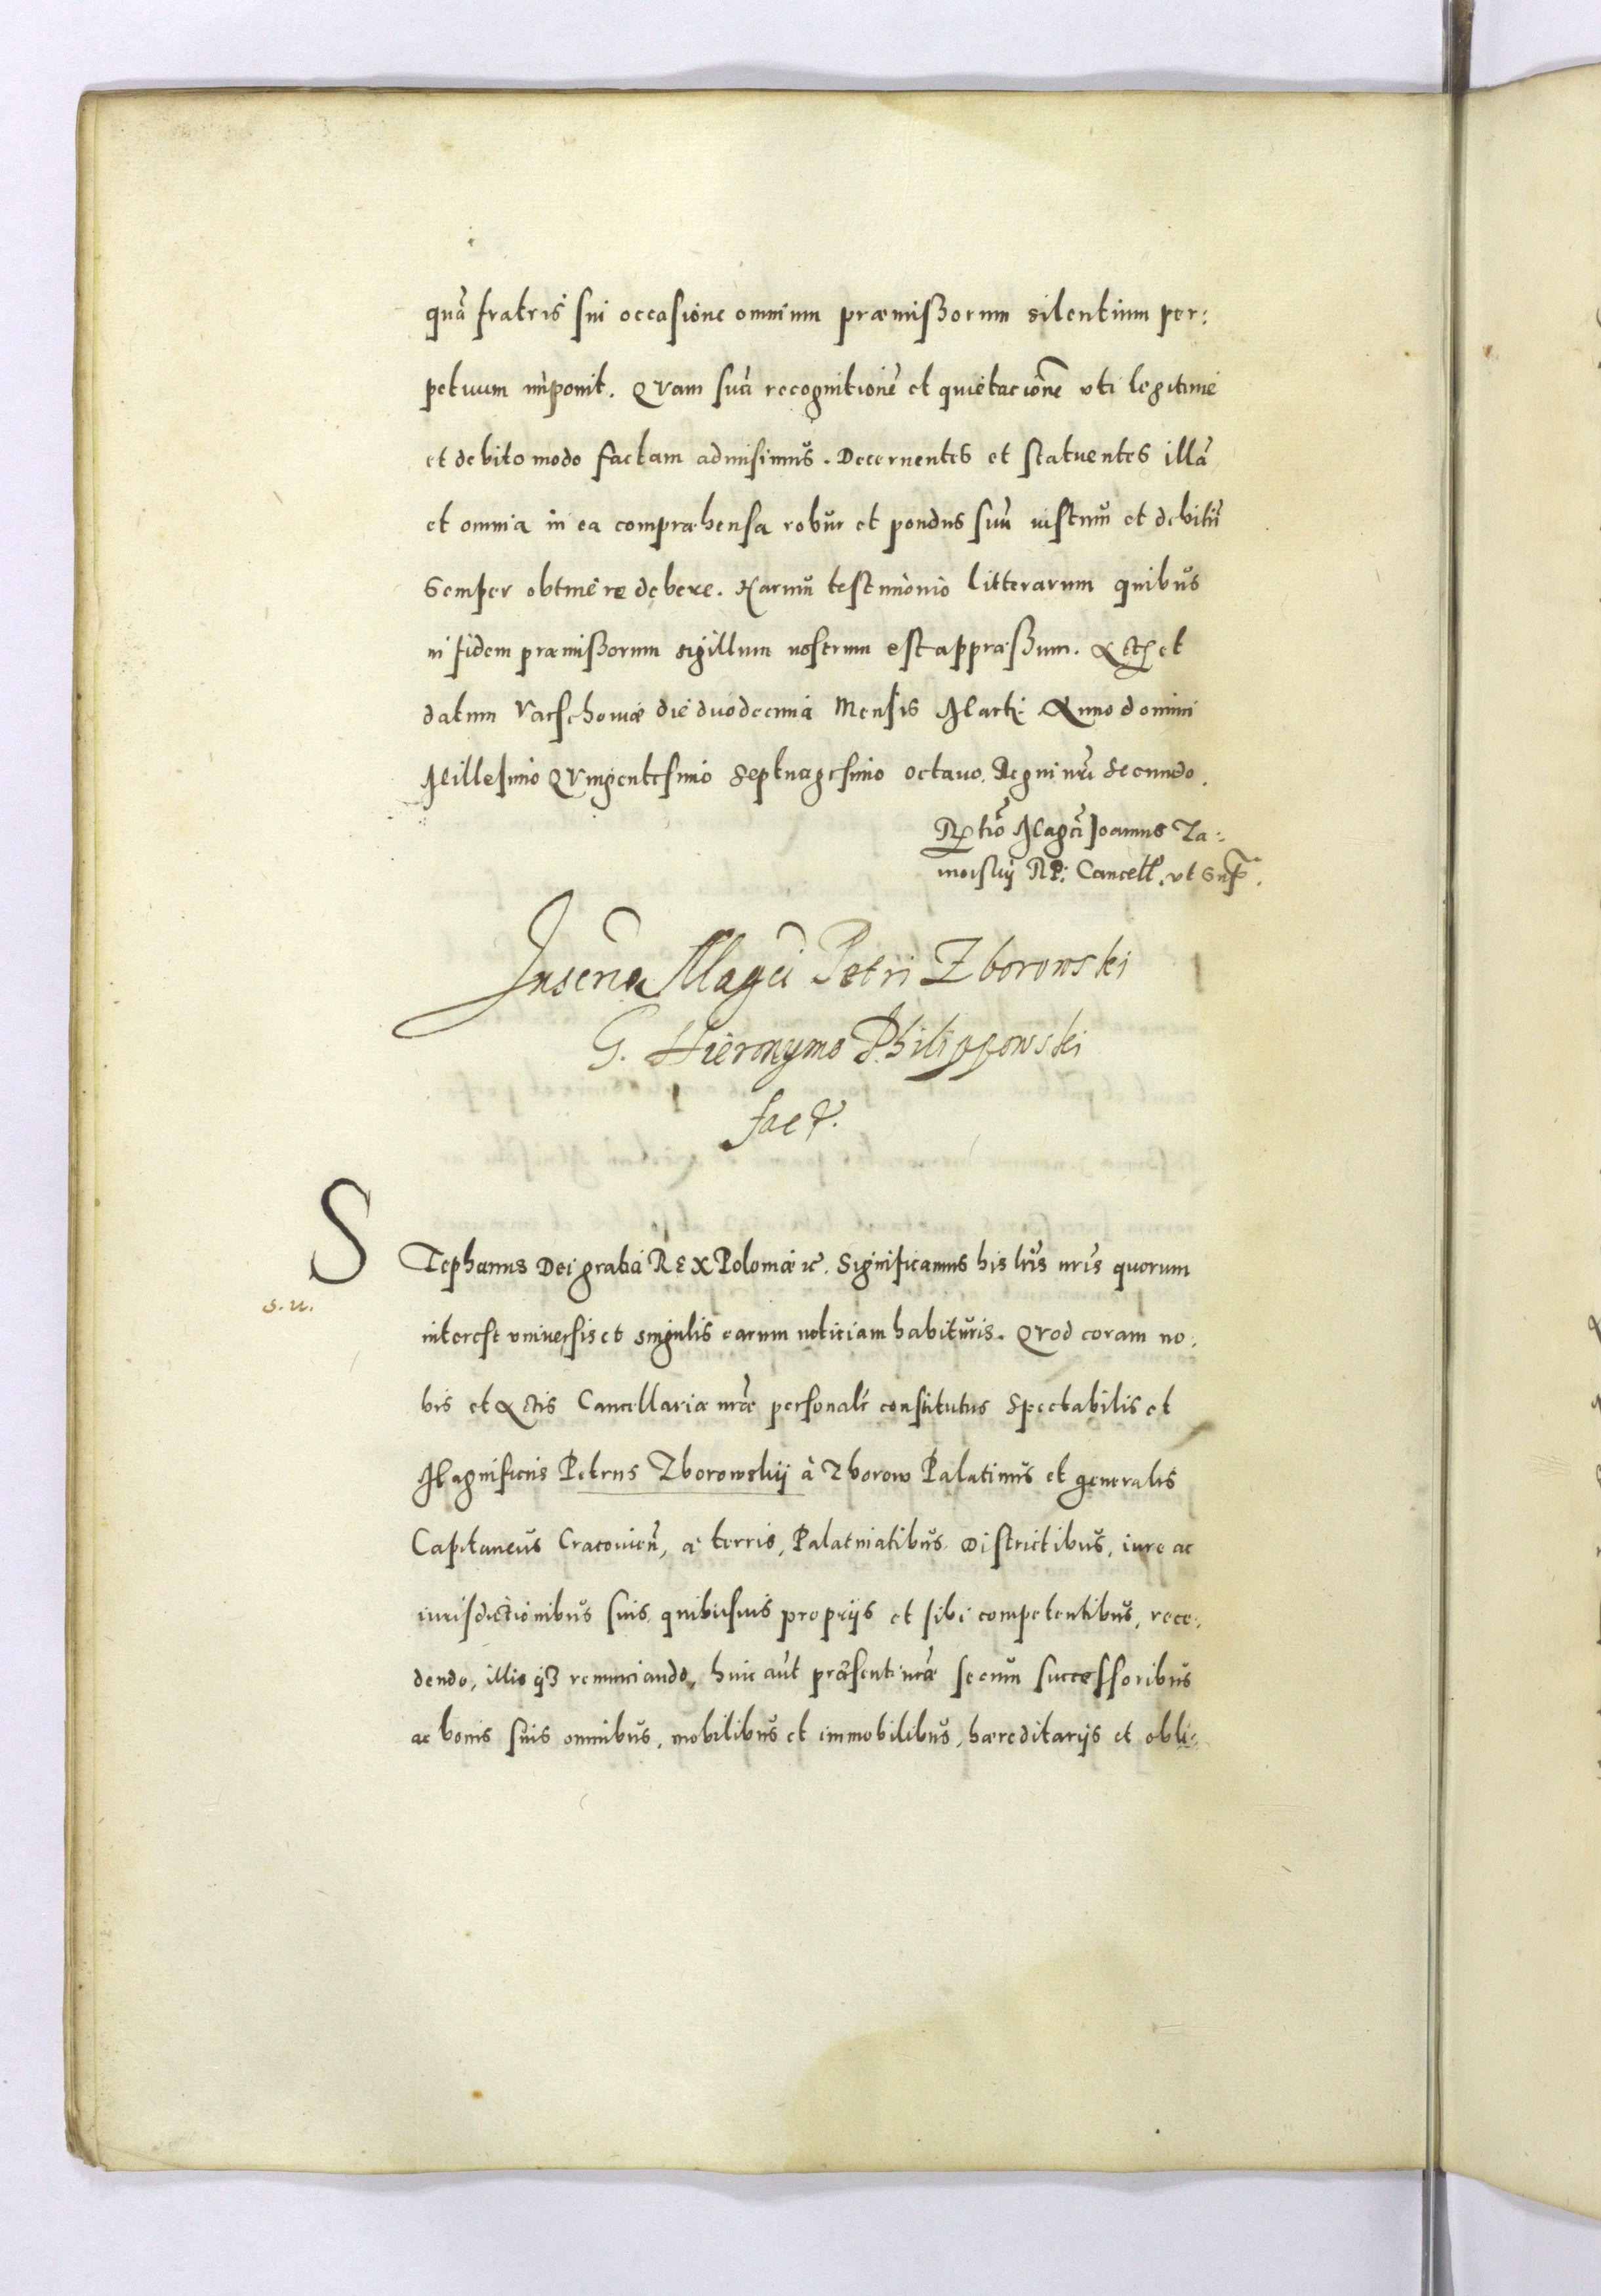 quā fratris sui occasione omnium præmißorum silentium per:
petuum imponit. QVam suā recognitionē et quietacionē vti legitimè
et debito modo factam admisimus. Decernentes et statuentes illā
et omnia in ea compræhensa robur et pondus suū iustum et debitū
Semper obtinere debere. Harum testimonio litterarum quibus
in fidem præmißorum sigillum nostrum est appræßum. Act et
datum Varschoviæ die duodecima Mensis Marti. Anno domini
Millesimo QVingentesimo Septuagesimo octauo. Regni nrī Secundo.
Rtio Magci Joannis Za:
moiskij RP: Cancell. vt Supr.
Inscrip Magci Petri Zborowski
G. Hieronymo Philippowski
fact.
STephanus Dei gratia REX Poloniæ &c. Significamus his lris nris quorum
s. u.
interest vniuersis et singulis earum noticiam habituris. QVod coram no:
bis et Actis Cancellariæ nræ personalr constitutus Spectabilis et
Magnificus Petrus Zborowskij à Zborow Palatinus et generalis
Capitaneus Cracouien̄, a terris, Palatinatibus Districtibus, iure ac
iurisdictionibus suis quibusuis proprijs et sibi competentibus, rece:
dendo, illisqȝ renunciando, huic aūt præsenti nræ secum successoribus
ac bonis suis omnibus, mobilibus et immobilibus, hæreditarijs et obli: